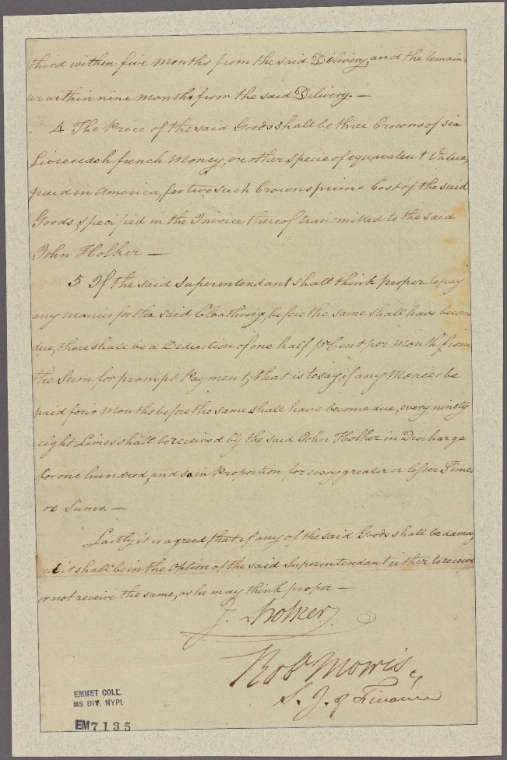 third within five Months from the said Delivery, and the remain-
der within nine Months from the said Delivery. —
4 The Price of the said Goods shall be three Crowns of six
Livres each french Money, or other Specie of equivalent Value,
paid in America, for two such Crowns prime Cost of the said
Goods, specified in the Invoice thereof transmitted to the said
John Holker —
5 If the said Superintendant shall think proper to pay
any Monies for the said Cloathing, before the same shall have become
due, there shall be a Deduction of one half P Cent per Month from
the Sum for prompt Payment; that is to say, if any Monies be
paid four Months before the same shall have become due, every ninety
eight Livres shall be received by the said John Holker in Discharge
for one hundred, and so in Proportion for every greater or lesser Times
or Sums —
Lastly it is agreed, that if any of the said Goods shall be damag
ed it shall be in the Option of the said Superintendant either to receive
or not receive the same, as he may think proper —
J. Holker
Rob Morris,
S. J. of Finance
EMMET COLL.
MS DIV. NYPL
EM7135